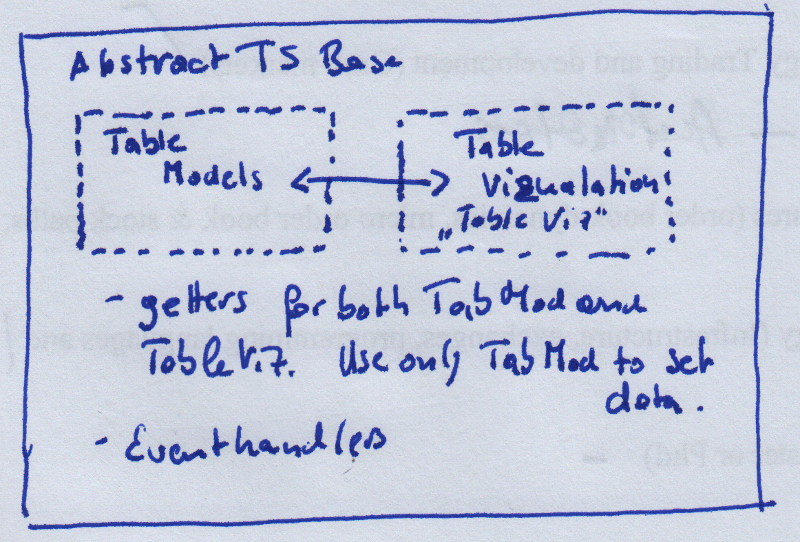 Abstract TS Base
Table
Models
Table
Vizualation
„Table Viz"
- getters for both TabMod and
TableViz. Use only TabMod to set
data.
- Eventhandlers
gy Trading and development
res (order book
, micro order book & stock paths,
y (Infrastructure, exchanges, programming languages and
ster or Phd) -